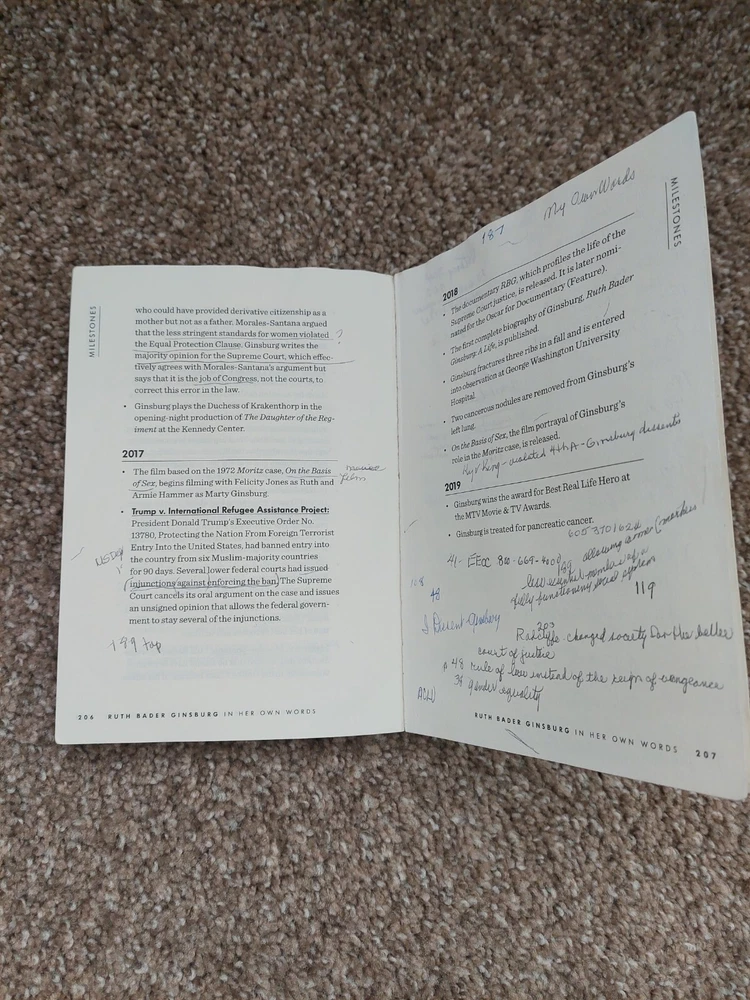 MILESTONES
who could have provided derivative citizenship as a
mother but not as a father. Morales-Santana argued
that the less stringent standards for women violated ?
the Equal Protection Clause. Ginsburg writes the
majority opinion for the Supreme Court, which effec-
tively agrees with Morales-Santana's argument but
says that it is the job of Congress, not the courts, to
correct this error in the law.
• Ginsburg plays the Duchess of Krakenthorp in the
opening-night production of The Daughter of the Reg-
iment at the Kennedy Center.
2017
• The film based on the 1972 Moritz case, On the Basis
of Sex, begins filming with Felicity Jones as Ruth and
Armie Hammer as Marty Ginsburg.
movie
film
• Trump v. International Refugee Assistance Project:
President Donald Trump's Executive Order No.
13780, Protecting the Nation From Foreign Terrorist
Entry Into the United States, had banned entry into
the country from six Muslim-majority countries
for 90 days. Several lower federal courts had issued
injunctions against enforcing the ban. The Supreme
Court cancels its oral argument on the case and issues
an unsigned opinion that allows the federal govern-
ment to stay several of the injunctions.
189 top
206 RUTH BADER GINSBURG IN HER OWN WORDS
187
My Own Words
MILESTONES
2018
• The documentary RBG, which profiles the life of the
Supreme Court justice, is released. It is later nomi-
nated for the Oscar for Documentary (Feature).
• The first complete biography of Ginsburg, Ruth Bader
Ginsburg: A Life, is published.
• Ginsburg fractures three ribs in a fall and is entered
into observation at George Washington University
Hospital.
• Two cancerous nodules are removed from Ginsburg's
left lung.
• On the Basis of Sex, the film portrayal of Ginsburg's
role in the Moritz case, is released.
Ky v King - violated 4th A - Ginsburg dissents
2019
• Ginsburg wins the award for Best Real Life Hero at
the MTV Movie & TV Awards.
• Ginsburg is treated for pancreatic cancer.
41- EEOC 800-669-400
allowing
less essential members of a
fully functioning social system
119
168
48
I Dissent-Ginsburg
203
Radcliffe - changed society for the better
court of justice
p 48 rule of law instead of the reign of vengeance
34 gender equality
ACLU
RUTH BADER GINSBURG IN HER OWN WORDS 207